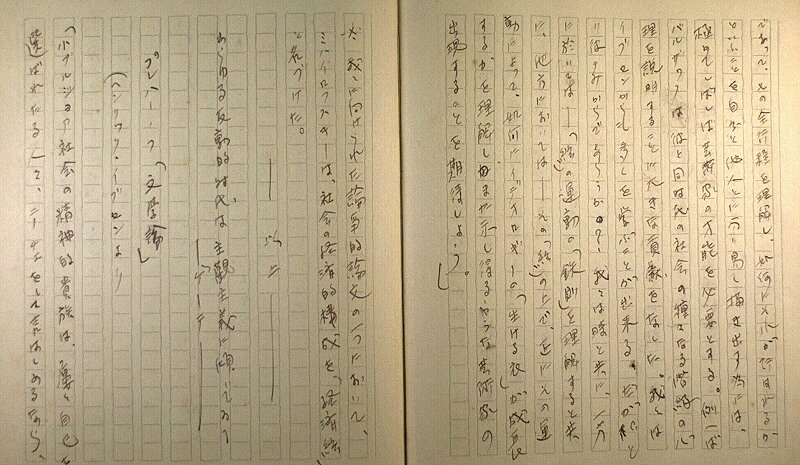 であって、その全行程を理解し、如何にそれが行はれるか
といふことを自分と他人とに示し易し描き出す為には、
極めてしばしば芸術家の才能を必要とする。例へば
バルザックは彼と同時代の社会の種々なる階級の心
理を説明することに大きな貢献をなした。我々は
イプセンからも多くを学ぶことが出来る。だが
我々は時と共に、一方
に於いては「糸の運動」の「鉄則」を理解すると共
に、他方においては その「糸」の上で、正にその運
動によって、如何にイデオロギーの「生ける衣」が成長
するかを理解し且また示し得るやうな芸術家の
出現することを期待しよう。」
我々に向けられた論争的論文の一つにおいて、
ミハイロフスキーは、社会の経済的構成を、「経済絃」
と名づけた。
以上
あらゆる反動的時代は主観主義に傾いてゐる
ゲーテ
プレハーノフ「文学論」
(ヘンリック・イプセンより)
「小ブルジョア社会の精神的貴族は、屡々自己を
選ばれたる人で、ニーチェをしてたはしめるなら、